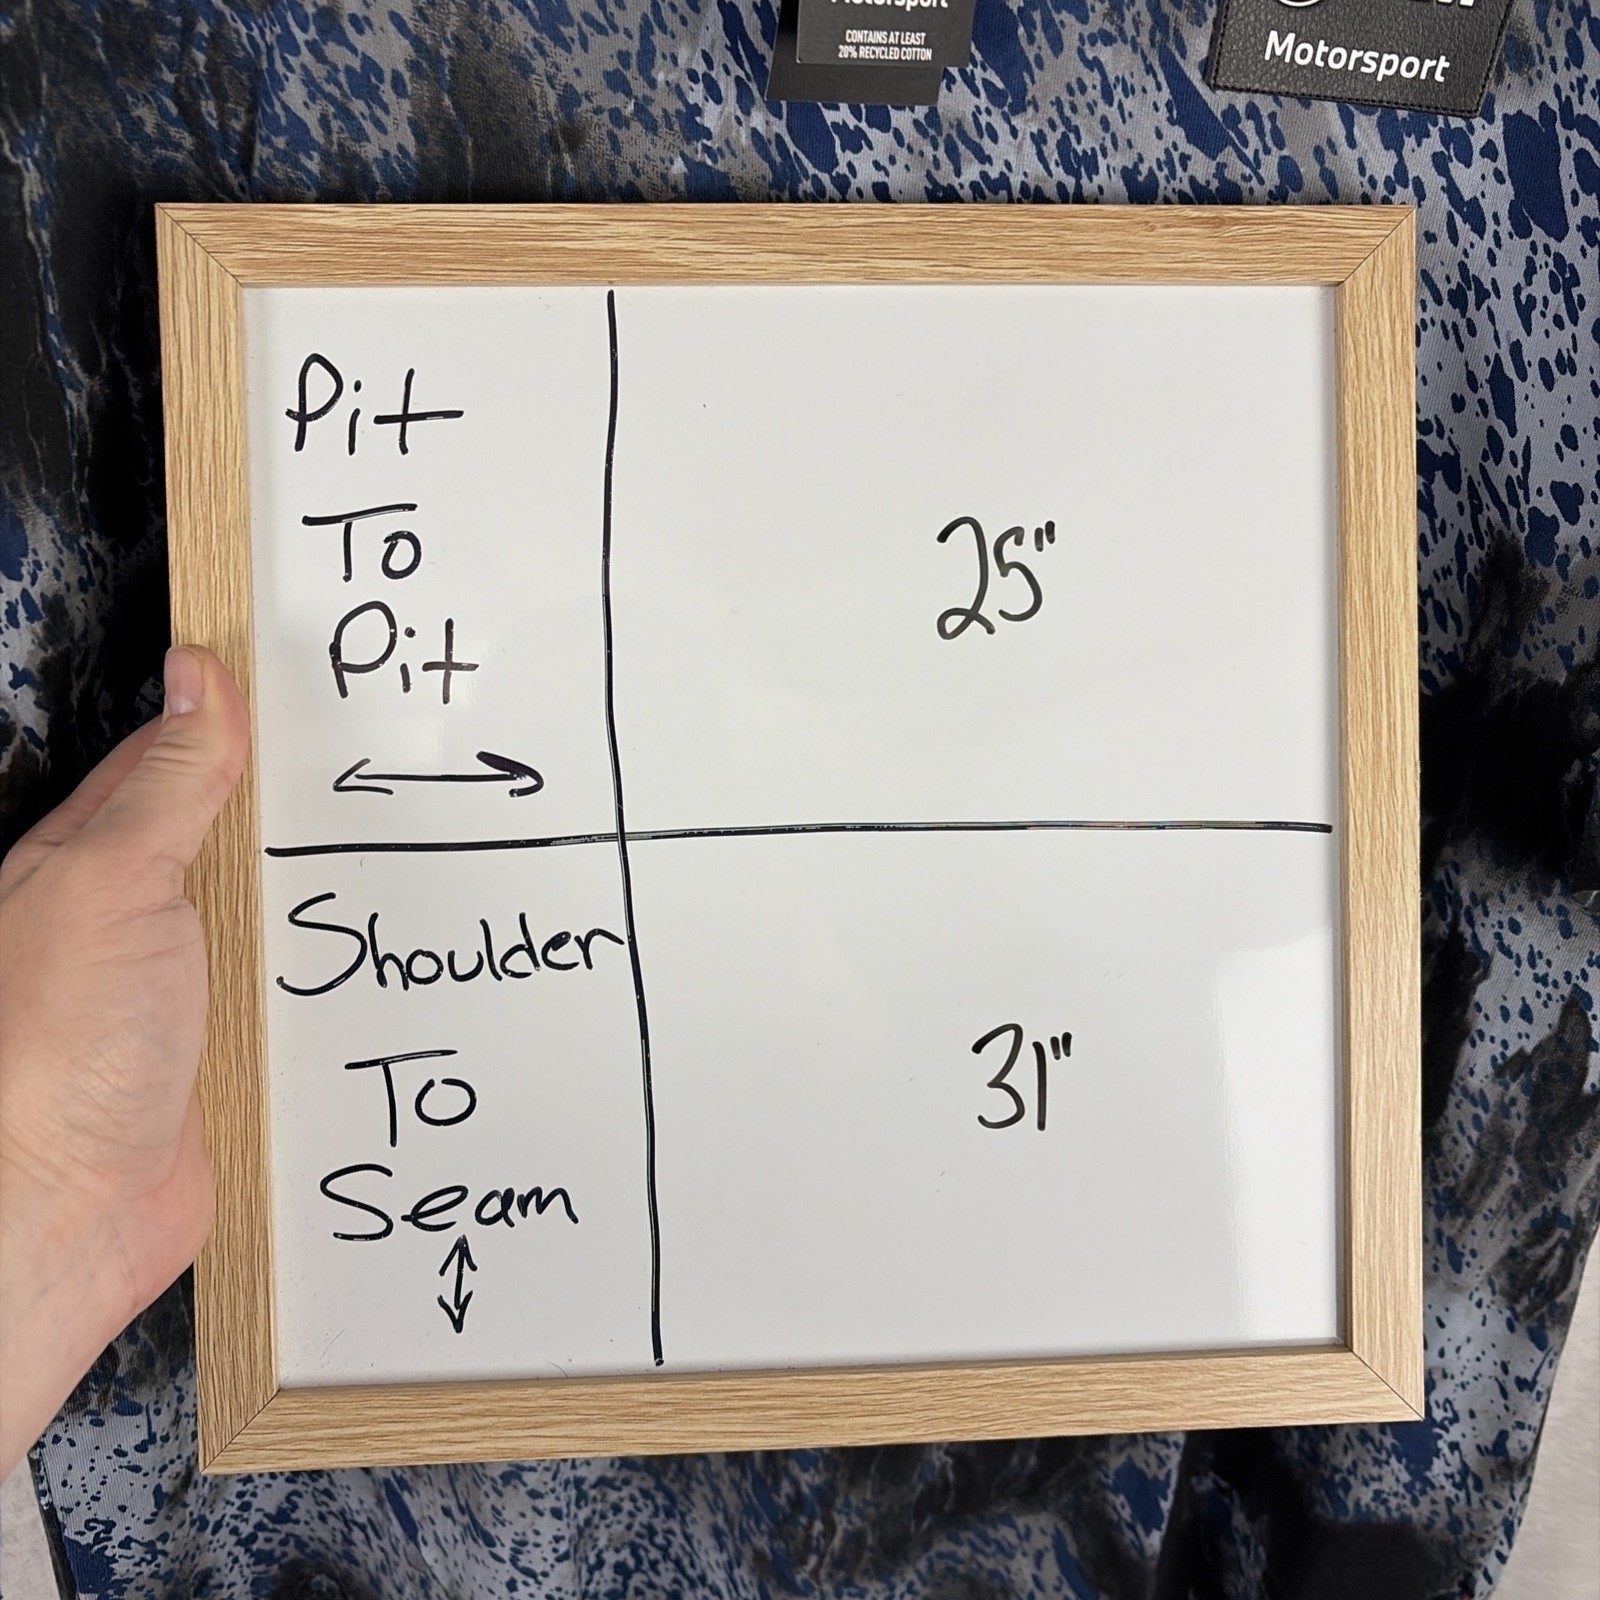 CONTAINS AT LEAST
20% RECYCLED COTTON
Motorsport
Pit
To
Pit
25"
Shoulder
To
Seam
31"